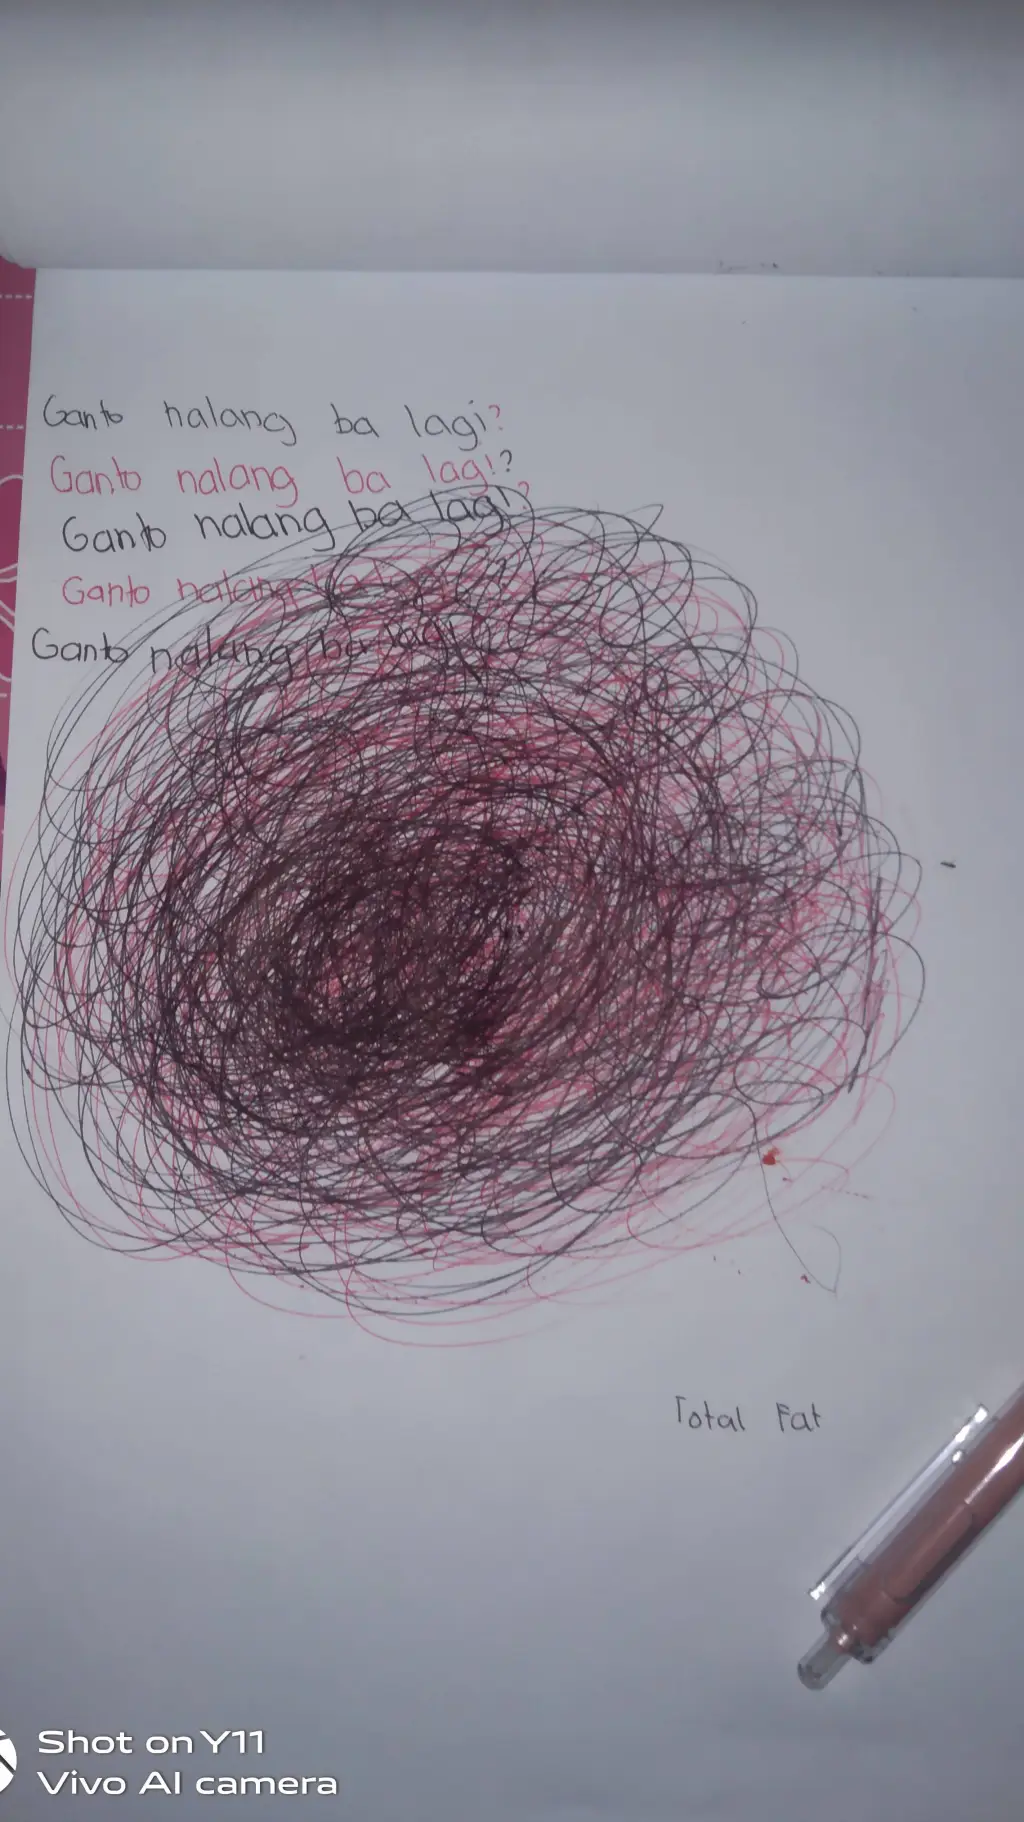 Ganto nalang ba lagi?
Ganto nalang ba lagi?
Ganto nalang ba lagi?
Ganto nalang ba
Ganto nalang ba lagi
Total Fat
Shot on Y11
Vivo AI camera